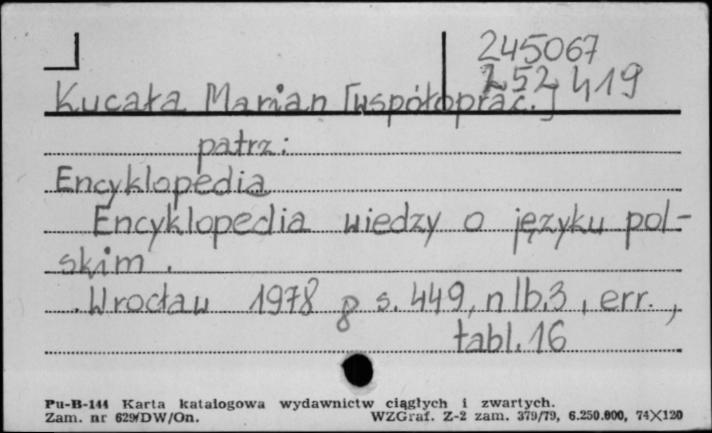 245067
252419
Kucała Marian [współoprac.]
patrz:
Encyklopedia
Encyklopedia wiedzy o języku pol-
skim.
Wrocław 1978 8 s. 449, nlb.3, err.,
tabl. 16
Pu-B-144 Karta katalogowa wydawnictw ciągłych i zwartych.
Zam. nr 629/DW/On. WZGraf. Z-2 zam. 379/79, 6.250.000, 74×120